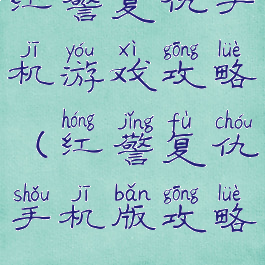 红警复仇手
jī yóu xì gōng lüè
机游戏攻略
hóng jǐng fù chóu
(红警复仇
shǒu jī bǎn gōng lüè
手机版攻略